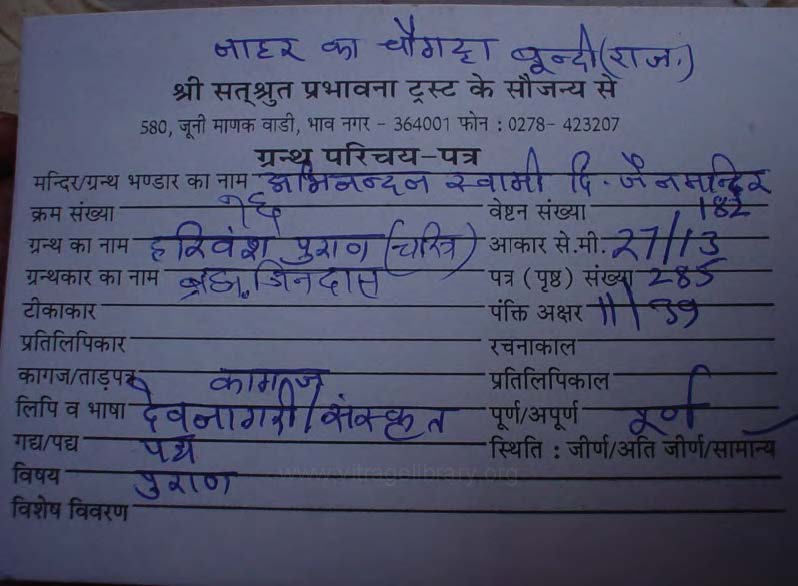 नाहर का चौगहा बून्दी (राज.)
श्री सत्श्रुत प्रभावना ट्रस्ट के सौजन्य से
580, जूनी माणक वाडी, भाव नगर - 364001 फोन : 0278- 423207
ग्रन्थ परिचय-पत्र
मन्दिर/ग्रन्थ भण्डार का नाम अभिनन्दन स्वामी दि. जैन मन्दिर
क्रम संख्या १६ वेष्टन संख्या 182
ग्रन्थ का नाम हरिवंश पुराण (चरित्र) आकार से.मी. 27/13
ग्रन्थकार का नाम ब्रह्म जिनदास पत्र (पृष्ठ) संख्या 285
टीकाकार पंक्ति अक्षर 11/39
प्रतिलिपिकार रचनाकाल
कागज/ताड़पत्र कागज प्रतिलिपिकाल
लिपि व भाषा देवनागरी/संस्कृत पूर्ण/अपूर्ण पूर्ण
गद्य/पद्य पद्य स्थिति : जीर्ण/अति जीर्ण/सामान्य
विषय पुराण
www.vitragelibrary.org
विशेष विवरण